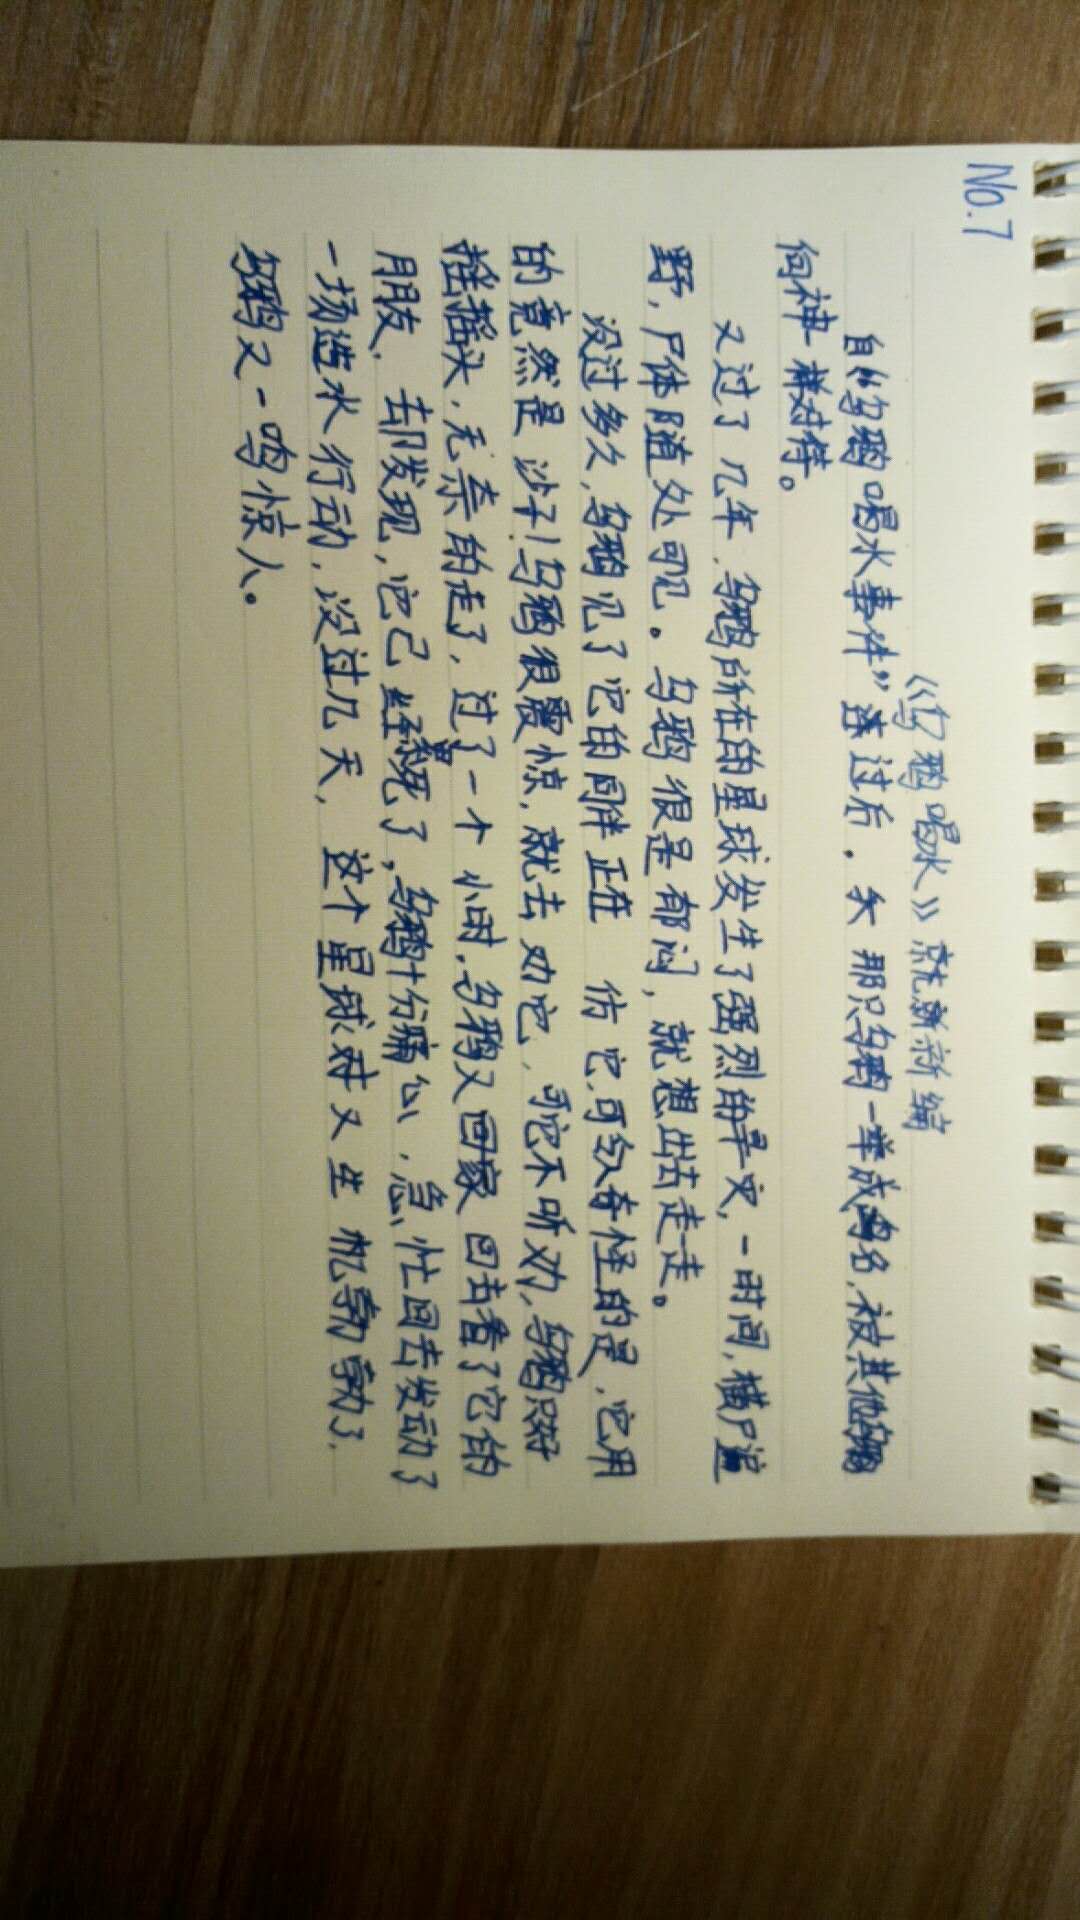 No.7
《乌鸦喝水》新编
自从“乌鸦喝水事件”过后，那只乌鸦一举成名，被其他乌鸦
向神一样对待。
又过了几年，乌鸦所在的星球发生了强烈的旱灾，一时间，横尸遍
野，尸体随处可见。乌鸦很是郁闷，就想出去走走。
没过多久，乌鸦见了它的同伴正在仿它，可令人奇怪的是，它用
的竟然是沙子！乌鸦很震惊，就去劝它，可它不听劝，乌鸦只好
摇摇头，无奈的走了，过了一个小时，乌鸦又回去看了它的
朋友，却发现，它已经死了，乌鸦十分痛心，急忙回去发动了
一场造水行动，没过几天，这个星球又生机勃勃了，
乌鸦又一鸣惊人。